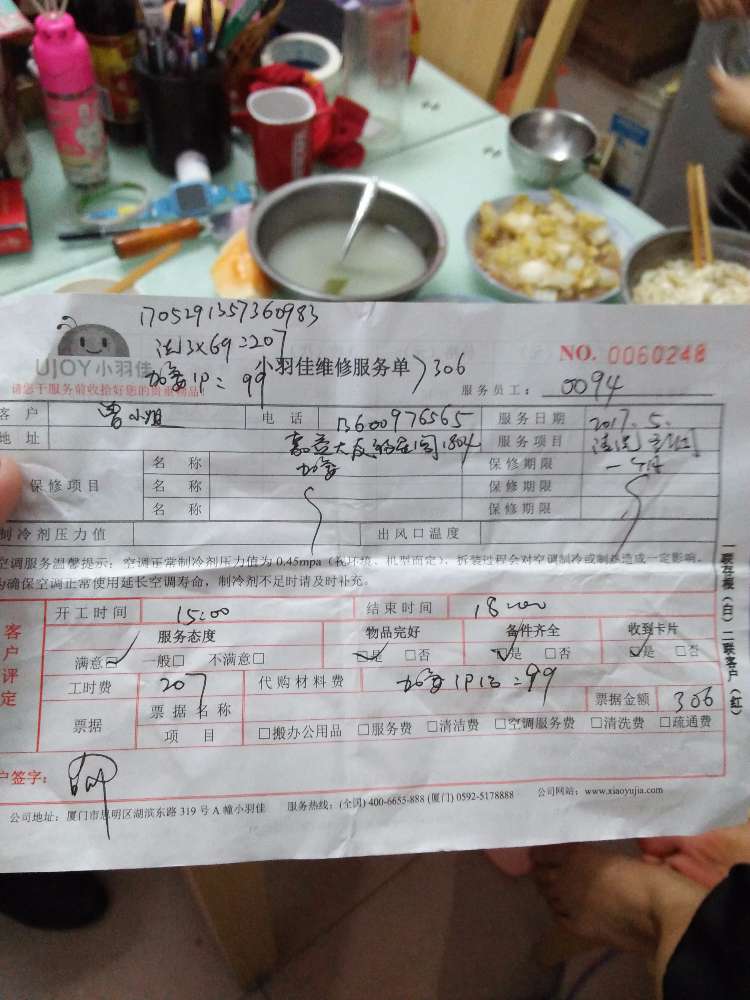 1705291357360983
洗3x69=207
加氟1P=99
306
UJOY小羽佳
小羽佳维修服务单
NO. 0060248
请您于服务前收拾好您的贵重物品!
服务员工: 0094
客户 曾小姐 电话 13600976565 服务日期 2017.5.
地址 1804 服务项目 清洗
保修项目 名称 加氟 保修期限 一个月
名称 保修期限
名称 保修期限
制冷剂压力值 出风口温度
空调服务温馨提示: 空调正常制冷剂压力值为0.45mpa(视环境、机型而定),拆装过程会对空调制冷或制热造成一定影响。
为确保空调正常使用延长空调寿命,制冷剂不足时请及时补充。
一联存根(白)二联客户(红)
客户评定
开工时间 15:00 结束时间 18:00
服务态度 物品完好 备件齐全 收到卡片
满意☑ 一般□ 不满意□ ☑是 □否 ☑是 □否 ☑是 □否
工时费 207 代购材料费 加氟1P =99
票据 票据名称 票据金额 306
项目 □搬办公用品 □服务费 □清洁费 □空调服务费 □清洗费 □疏通费
户签字:
公司地址: 厦门市思明区湖滨东路319号A幢小羽佳 服务热线: (全国) 400-6655-888 (厦门) 0592-5178888 公司网站: www.xiaoyujia.com